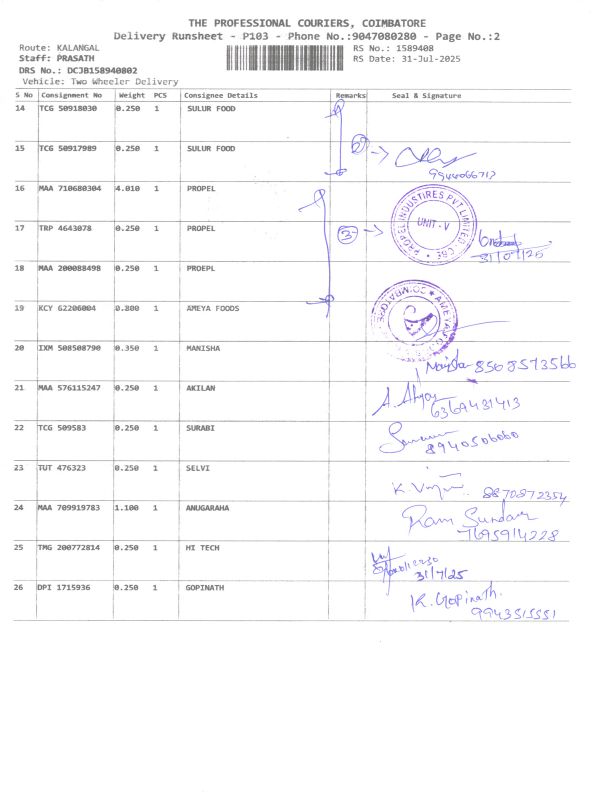 THE PROFESSIONAL COURIERS, COIMBATORE
Delivery Runsheet - P103 - Phone No.:9047080280 - Page No.:2
Route: KALANGAL
RS No.: 1589408
Staff: PRASATH
RS Date: 31-Jul-2025
DRS No.: DCJB158940802
Vehicle: Two Wheeler Delivery
S No Consignment No Weight PCS Consignee Details Remarks Seal & Signature
14 TCG 50918030 0.250 1 SULUR FOOD
15 TCG 50917989 0.250 1 SULUR FOOD
2 →
9944066717
16 MAA 710680304 4.010 1 PROPEL
17 TRP 4643078 0.250 1 PROPEL
3 →
PROPEL INDUSTIRES PVT LIMITED. CBE
UNIT - V
31/07/25
18 MAA 200088498 0.250 1 PROEPL
19 KCY 62206004 0.800 1 AMEYA FOODS
20 IXM 508508790 0.350 1 MANISHA
8508573566
21 MAA 576115247 0.250 1 AKILAN
6369431413
22 TCG 509583 0.250 1 SURABI
8940506060
23 TUT 476323 0.250 1 SELVI
8870872354
24 MAA 709919783 1.100 1 ANUGARAHA
Ram Sundar
7695914228
25 TMG 200772814 0.250 1 HI TECH
31/7/25
26 DPI 1715936 0.250 1 GOPINATH
K. Gopinath.
9943515551